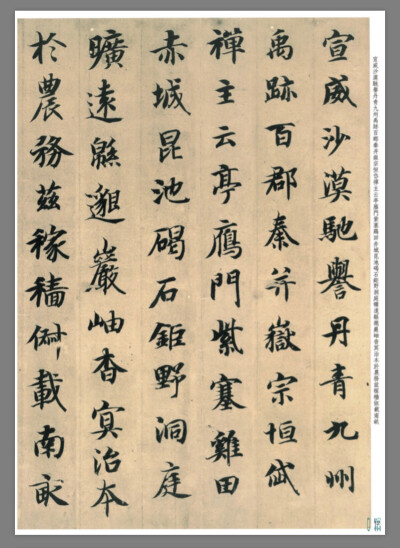 宣威沙漠馳譽丹青九州
禹跡百郡秦并嶽宗恒岱
禪主云亭鴈門紫塞雞田
赤城昆池碣石鉅野洞庭
曠遠緜邈巖岫杳冥治本
於農務茲稼穡俶載南畝
宣威沙漠馳譽丹青九州禹跡百郡秦并嶽宗恒岱禪主云亭雁門紫塞雞田赤城昆池碣石鉅野洞庭曠遠緜邈巖岫杳冥治本於農務茲稼穡俶載南畝